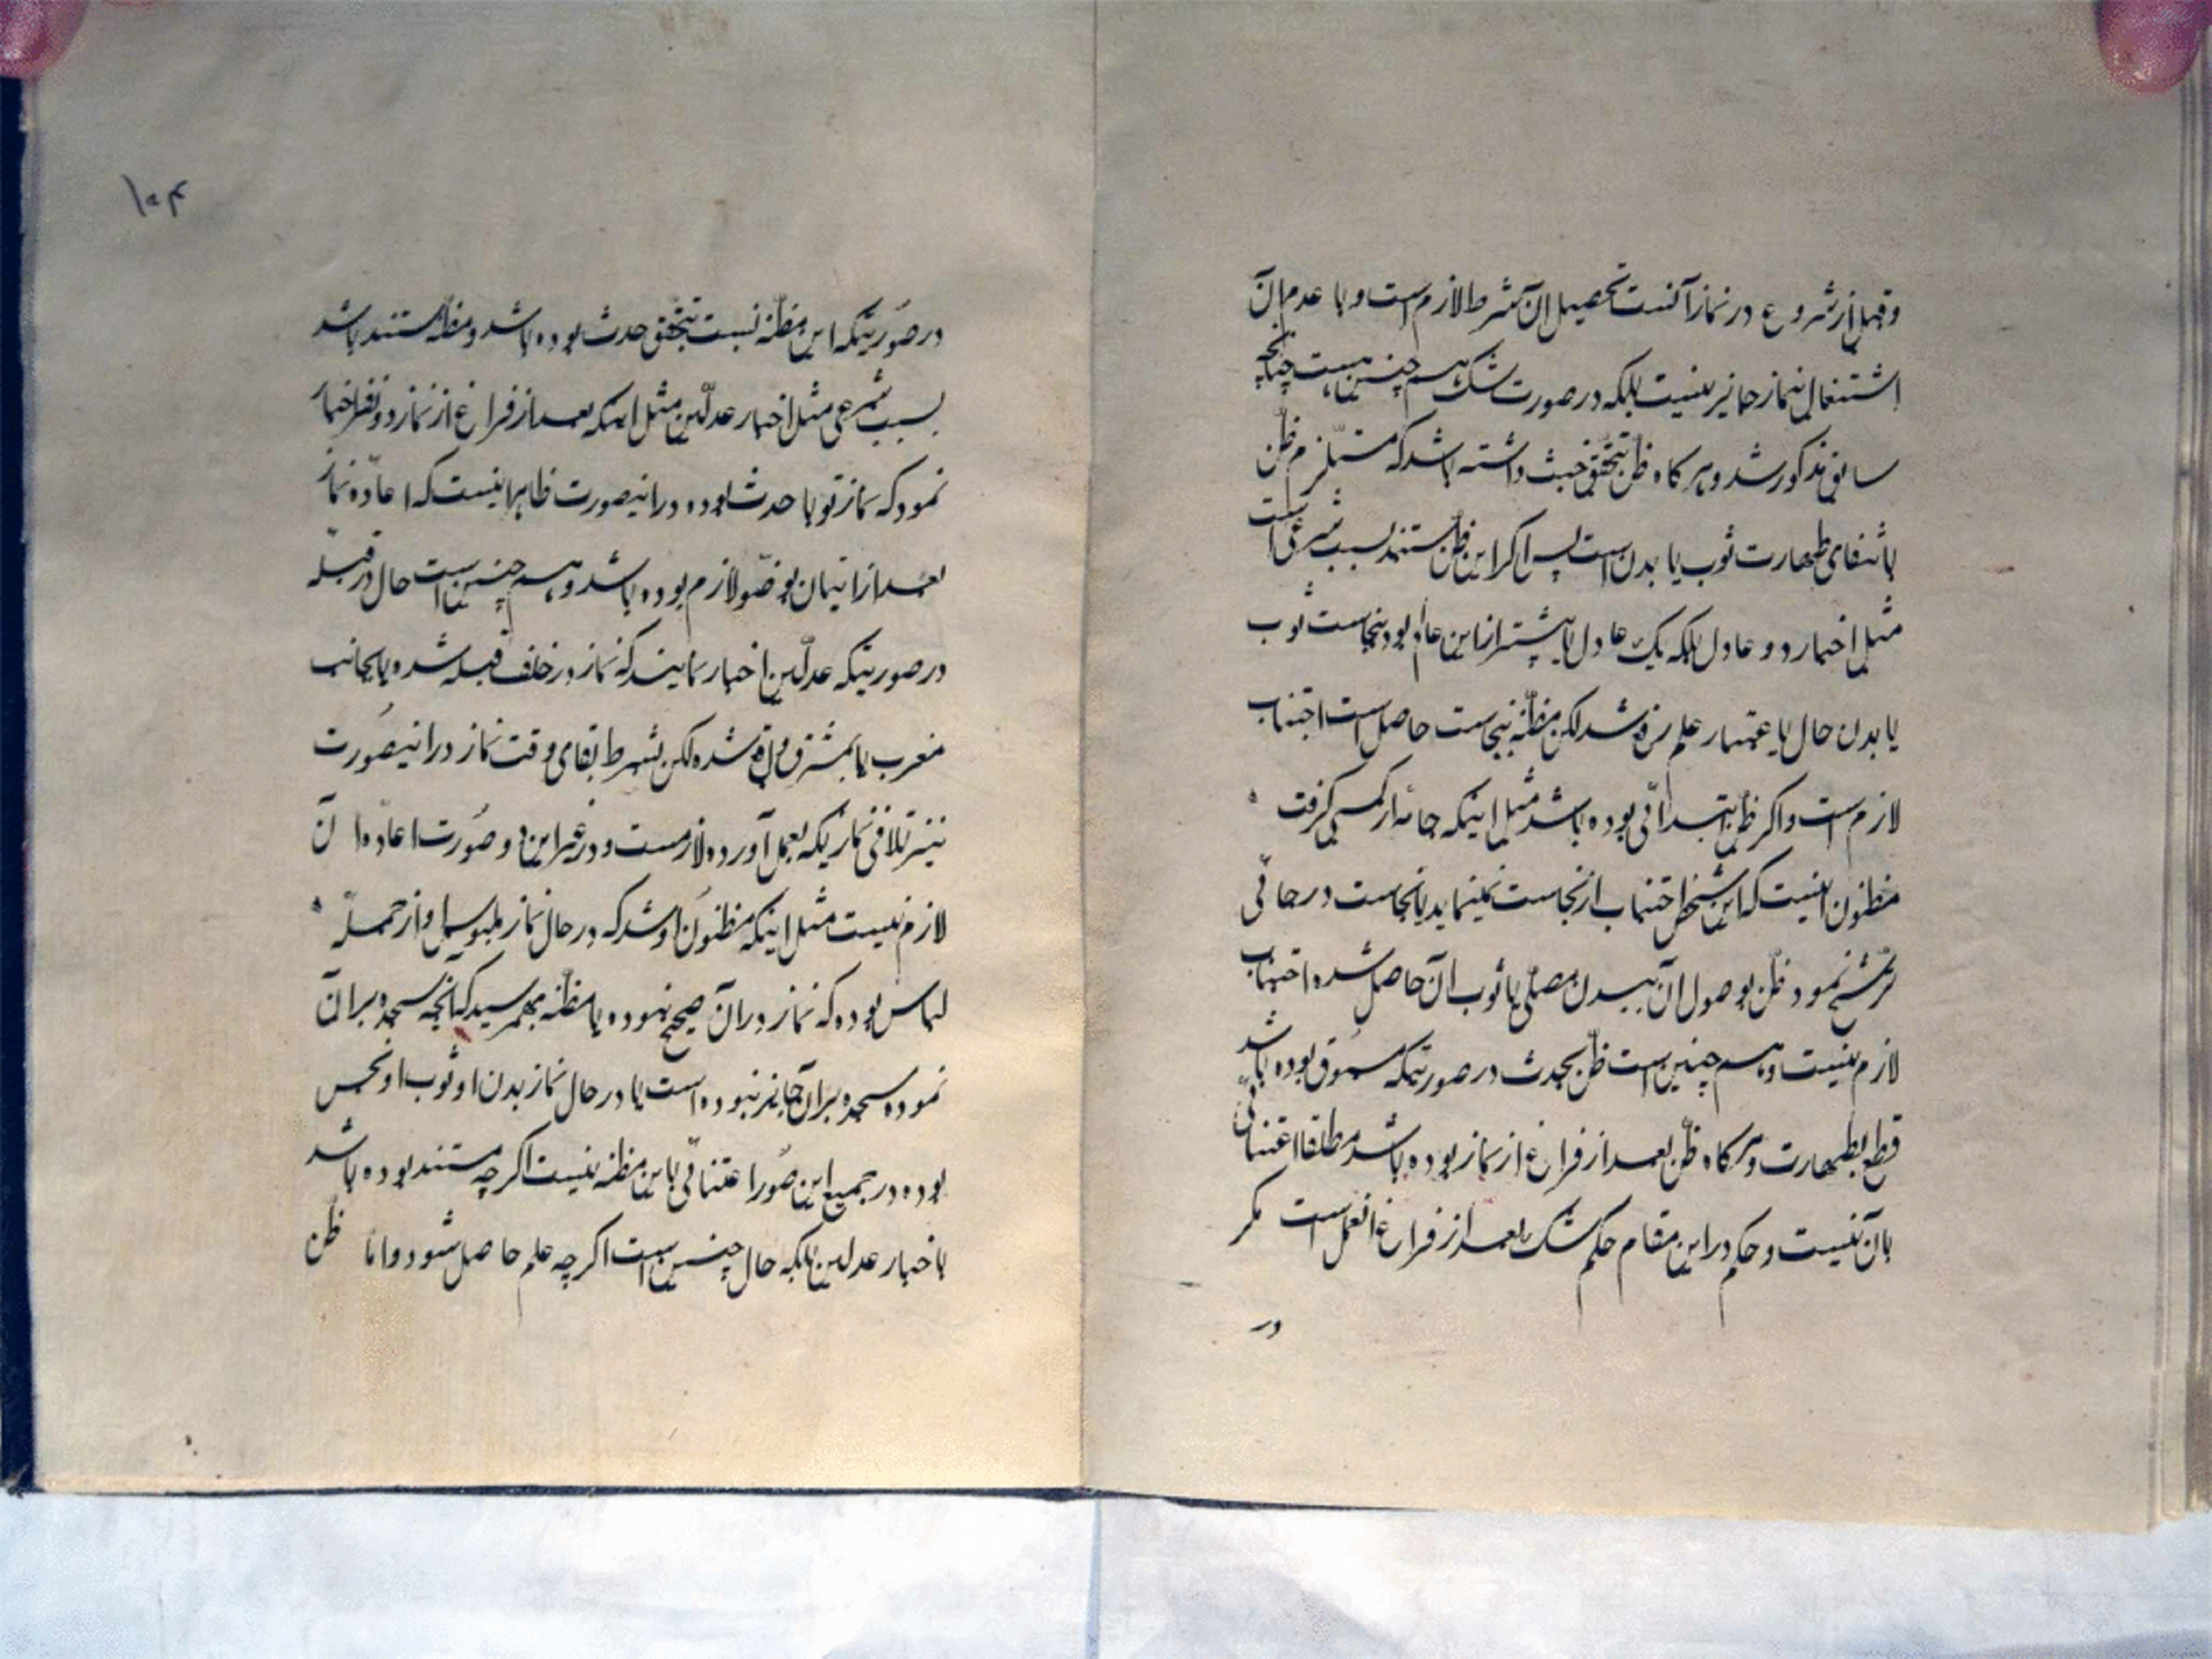 وقبل از شروع در نماز آنست تحصیل آن شرط لازم است و با عدم آن
اشتغال بنماز جایز نیست بلکه در صورت شک هم چنین است چنانچه
سابق مذکور شد و هر کاه ظن بتحقق خبث داشته باشد که مستلزم ظن
بانتفای طهارت ثوب یا بدن است پس اکر این ظن مستند بسبب شرعی است
مثل اخبار دو عادل بلکه یک عادل یا پیشتر از این عالم بود بنجاست ثوب
یا بدن حال باعتبار علم زده شد لکن مظنه بنجاست حاصل است اجتناب
لازم است و اکر ظن ابتدائی بوده باشد مثل اینکه جامه از کسی کرفت
مظنون اینست که این شخص اجتناب از نجاست نمینماید یا نجاست در جائی
ترشح نمود ظن بوصول آن ببدن مصلی یا ثوب آن حاصل شده اجتناب
لازم نیست و هم چنین است ظن بحدث در صورتیکه مسبوق بوده باشد
قطع بطهارت و هر کاه ظن بعد از فراغ از نماز بوده باشد مطلقا اعتنائی
بآن نیست و حکم در این مقام حکم شک بعد از فراغ از عمل است مکر
در
۱۰۴
در صورتیکه این مظنه نسبت بتحقق حدث بوده باشد و مظنه مستند باشد
بسبب شرعی مثل اخبار عدلین مثل اینکه بعد از فراغ از نماز دو نفر اخبار
نمود که نماز تو با حدث بوده در اینصورت ظاهر اینست که اعاده نماز
بعد از اتیان بوضو لازم بوده باشد و هم چنین است حال در قبله
در صورتیکه عدلین اخبار نمایند که نماز در خلف قبله شده یا بجانب
مغرب یا بمشرق واقع شده لکن بشرط بقای وقت نماز در اینصورت
نیز تلافی نماز یکه بعمل آورده لازمست و در غیر این دو صورت اعاده آن
لازم نیست مثل اینکه مظنون او شد که در حال نماز ملبوس او از جمله
لباس بوده که نماز در آن صحیح نبوده یا مظنه بهمرسید که آنچه سجده بر آن
نموده سجده بر آن جایز نبوده است یا در حال نماز بدن او ثوب او نجس
بوده در جمیع این صور اعتنائی باین مظنه نیست اکر چه مستند بوده باشد
باخبار عدلین بلکه حال چنین است اکر چه علم حاصل شود و اما ظن